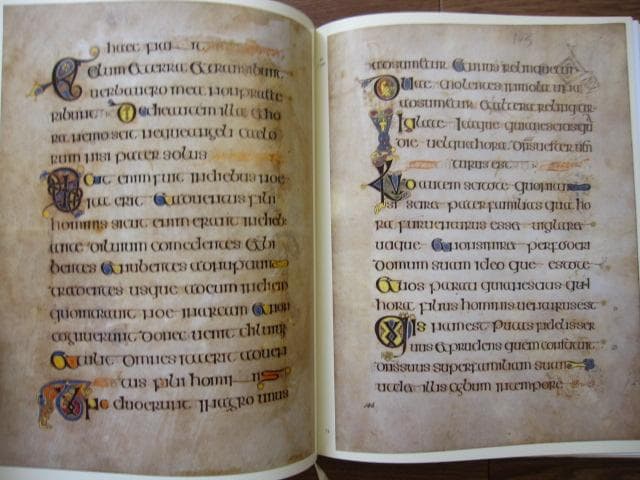 haec fiant
Celum et terra et transibunt
verba vero mea non praete
ribunt De die autem illa et ho
ra nemo scit neque angeli caelo
rum nisi pater solus
Sicut enim fuit in diebus noe
ita erit et adventus filii
hominis sicut enim erant in dieb
ante diluvium comedentes et bi
bentes et nubentes et nuptum
tradentes usque ad eum diem
quo intravit noe in arcam et non
cognoverunt donec venit diluvi
et tulit omnes ita erit adven
tus filii homini
Tunc duo erunt in agro unus
145
adsumetur et unus relinquetur
Duae molentes in mola una
adsumetur et altera relinque
Vigilate itaque quia nescitis qu
die vel qua hora vester
turus est
autem scitote quoniam
si sciret pater familias qua ho
ra fur venturus esset vigilaret
utique et non sineret perfodiri
domum suam ideo que estote
et vos parati quia nescitis qua
hora filius hominis venturus est
Quis nam est putas fidelis ser
vus et prudens quem constituit
super familiam suam
illis cibum in tempore
146